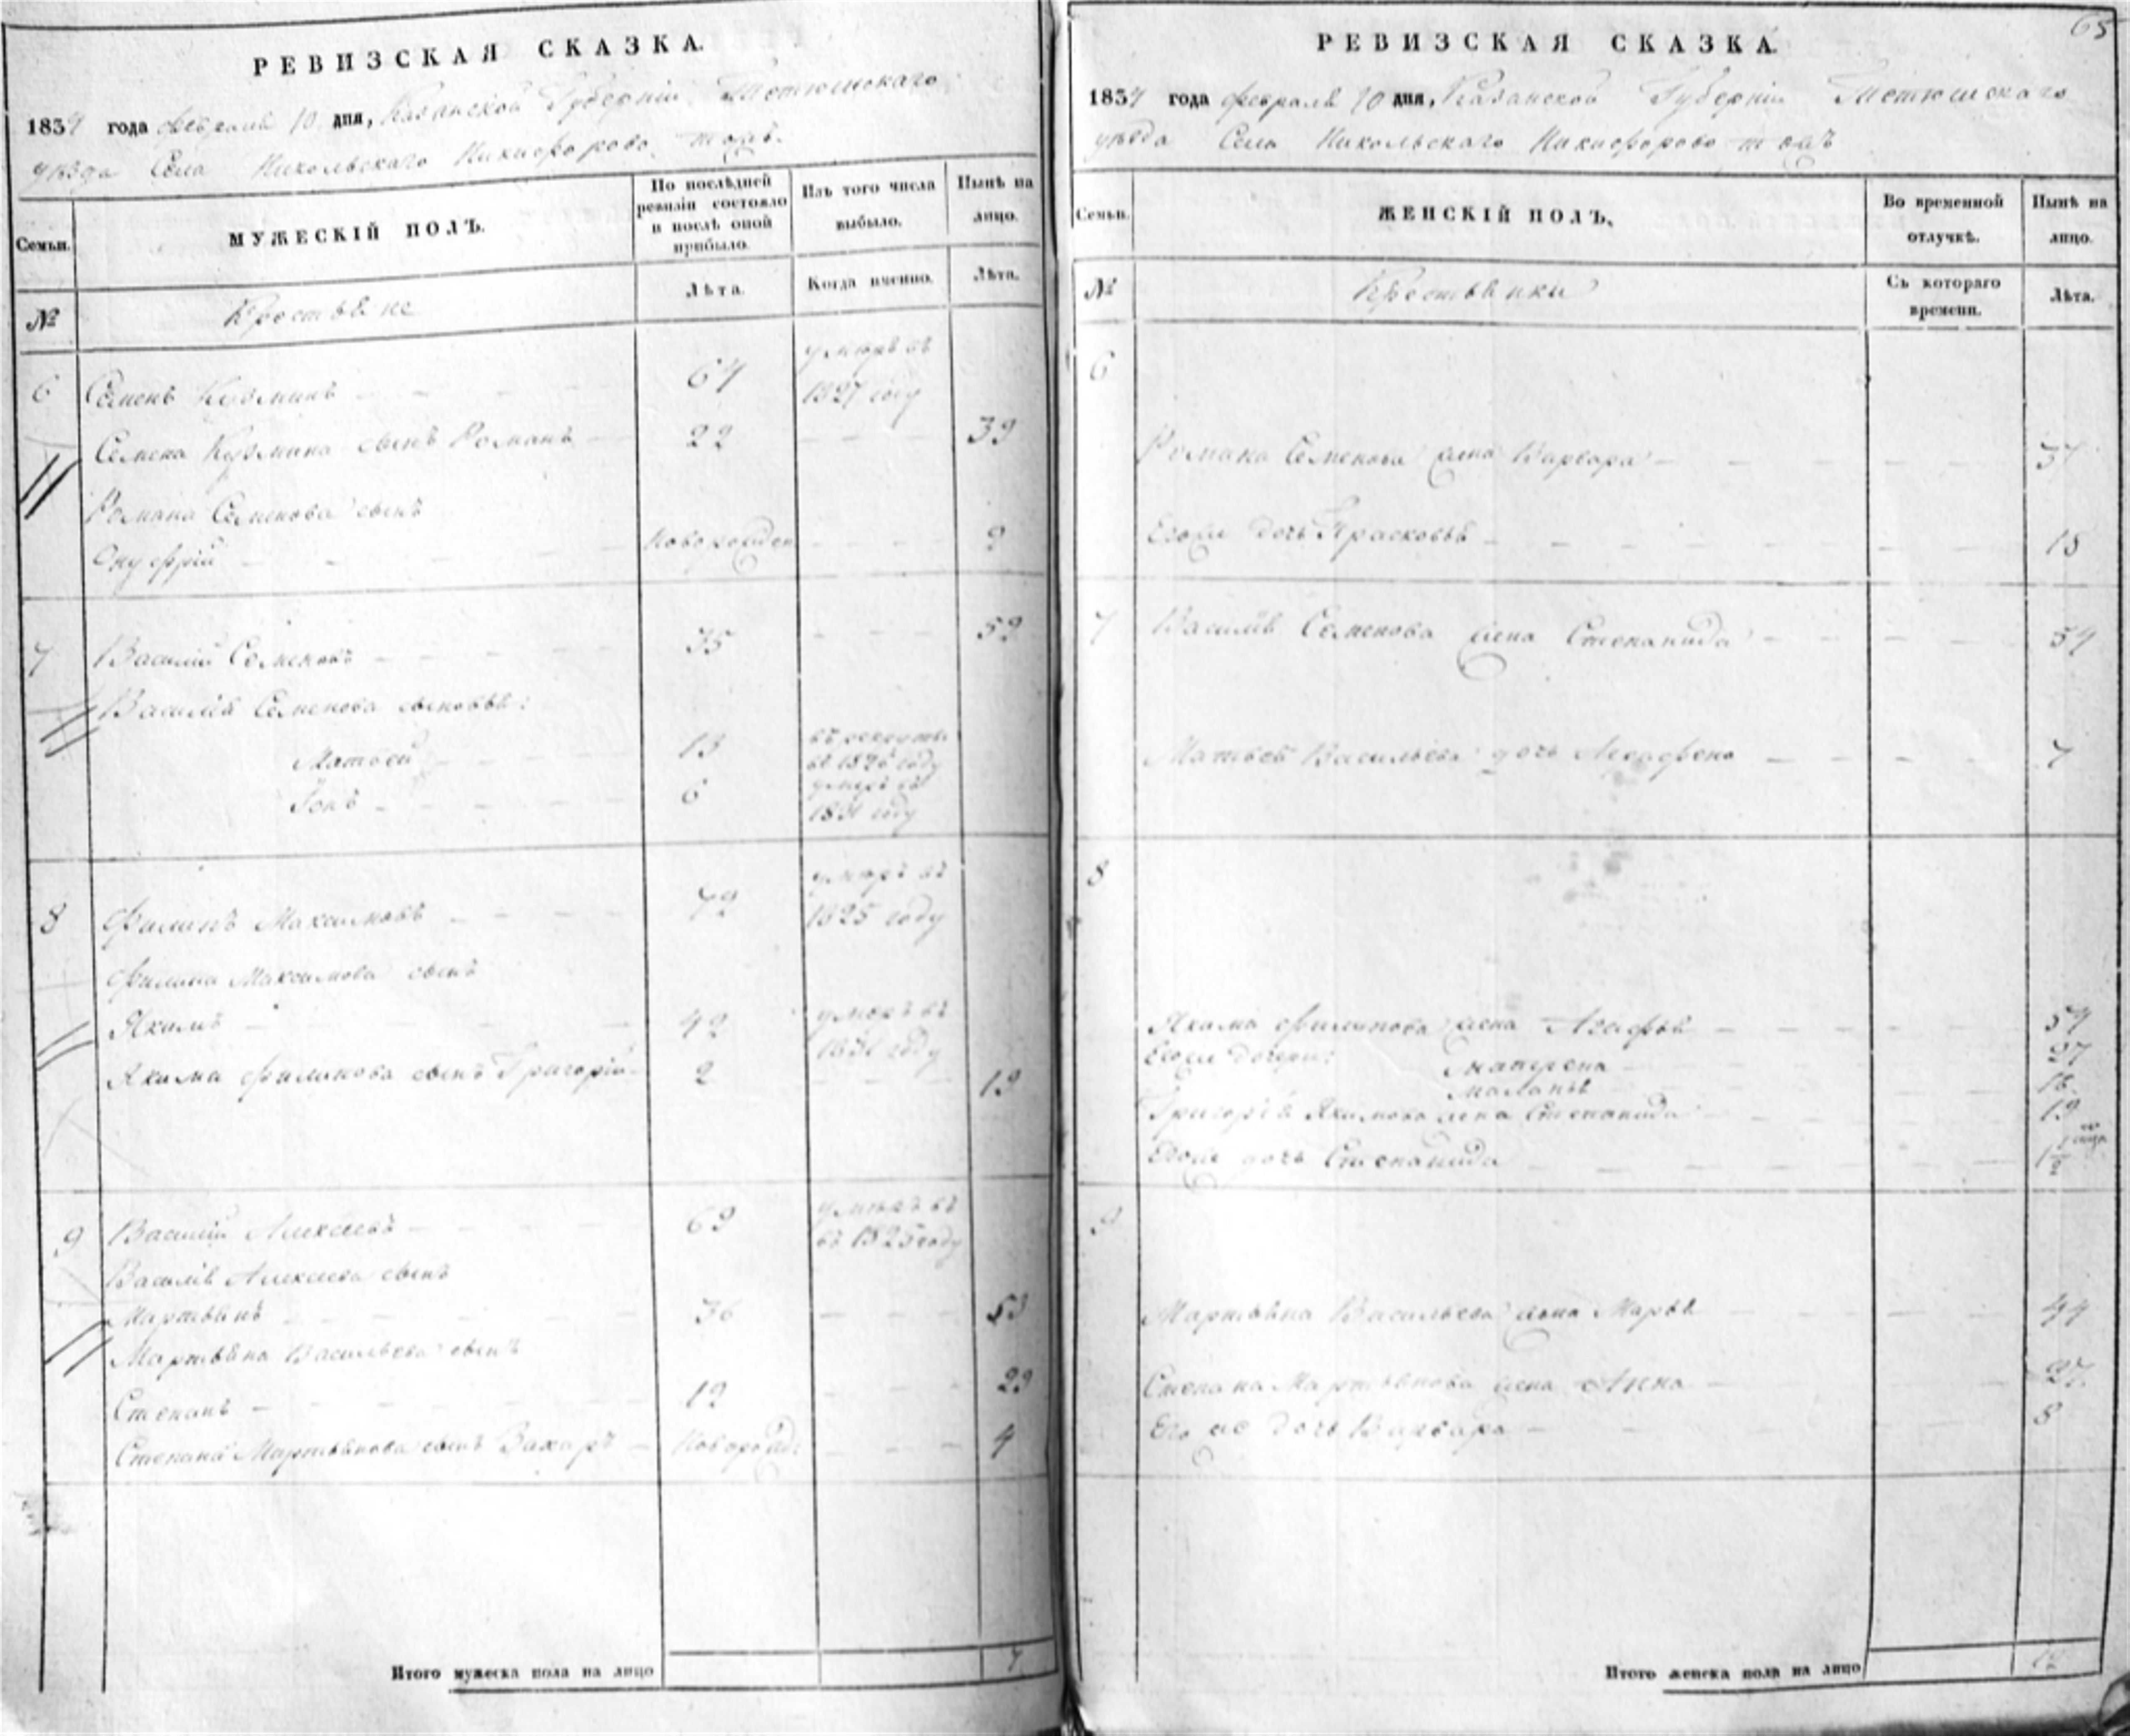 РЕВИЗСКАЯ СКАЗКА.
1834 года февраля 10 дня, Казанской Губернiи Тетюшскаго
уѣзда Села Никольскаго Никифорово тожъ.
Семьи.
МУЖЕСКIЙ ПОЛЪ.
По послѣдней ревизiи состояло и послѣ оной прибыло.
Изъ того числа выбыло.
Нынѣ на лицо.
№
Крестьяне
Лѣта.
Когда именно.
Лѣта.
6 Семенъ Кузминъ 64 умеръ въ 1827 году
Семена Кузмина сынъ Романъ 22 39
Романа Семенова сынъ
Онуфрiй Новорожден 9
7 Василiй Семеновъ 35 52
Василiя Семенова сыновья:
Матвей 13 въ рекруты въ 1826 году
Iонъ 6 умеръ въ 1831 году
8 Филипъ Максимовъ 72 умеръ въ 1825 году
Филипа Максимова сынъ
Якимъ 42 умеръ въ 1831 году
Якима Филипова сынъ Григорiй 2 19
9 Василiй Алексеевъ 69 умеръ въ въ 1825 году
Василiя Алексеева сынъ
Мартынъ 36 53
Мартына Васильева сынъ
Степанъ 12 29
Степана Мартынова сынъ Захаръ Новорожд: 4
Итого мужеска пола на лицо 7
65
РЕВИЗСКАЯ СКАЗКА.
1834 года февраля 10 дня, Казанской Губернiи Тетюшскаго
уѣзда Села Никольскаго Никифорово тожъ
Семьи.
ЖЕНСКIЙ ПОЛЪ.
Во временной отлучкѣ.
Нынѣ на лицо.
№
Крестьянки
Съ котораго времени.
Лѣта.
6
Романа Семенова жена Варвара 37
Егоже дочь Прасковья 18
7 Василiя Семенова жена Степанида 54
Матвея Васильева дочь Аграфена 7
8
Якима Филипова жена Агафья 54
Егоже дочери: Матрена 27
Маланья 16
Григорiя Якимова жена Степанида 19
Егоже дочь Степанида 1½
9
Мартына Васильева жена Марья 44
Степана Мартынова жена Анна 27
Его же дочь Варвара 8
Итого женска пола на лицо 12